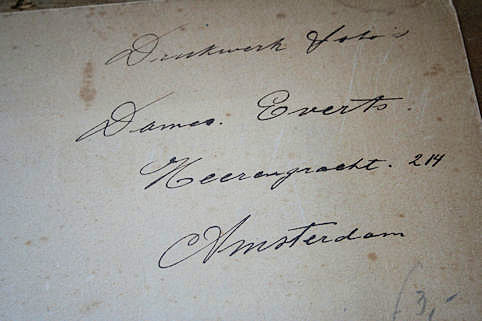 Drukwerk foto's
Dames. Everts.
Heerengracht. 214
Amsterdam
(3,-